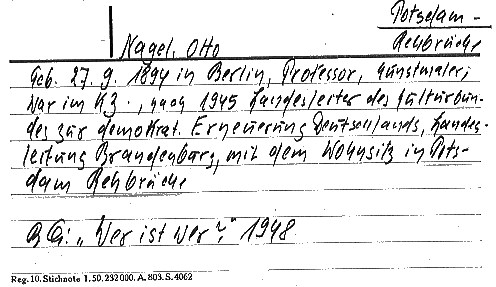 Potsdam -
Rehbrücke
Nagel, Otto
Geb. 27. 9. 1894 in Berlin, Professor, Kunstmaler;
war im KZ., nach 1945 Landesleiter des Kulturbun-
des zur demokrat. Erneuerung Deutschlands, Landes-
leitung Brandenburg, mit dem Wohnsitz in Pots-
dam Rehbrücke
BG: „Wer ist Wer?" 1948
Reg. 10. Stichnote 1. 50. 232 000. A. 803. S. 4062